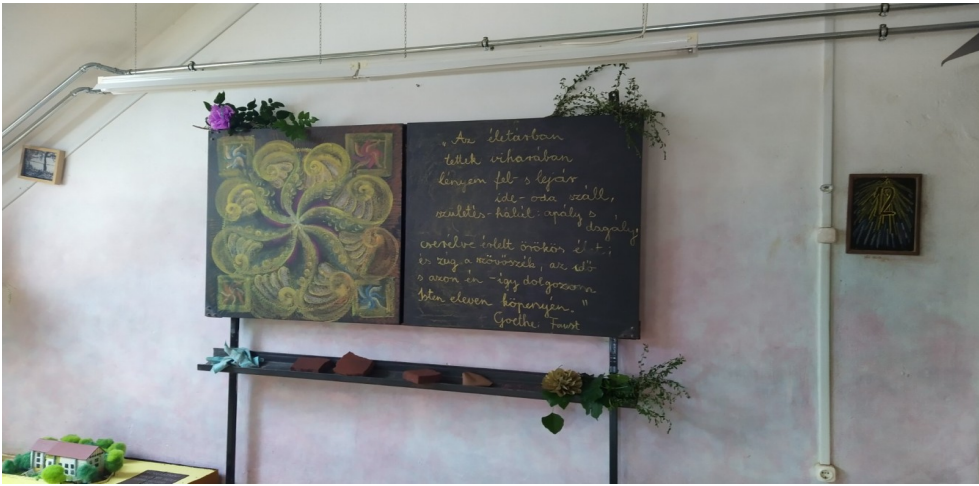 „Az életárban
tettek viharában
lényem fel- s lejár
ide-oda száll,
születés-halál: apály s
dagály,
cserélve érlelt örökös élet:
és zúg a szövőszék, az idő
s azon én - így dolgozom
Isten eleven köpenyén."
Goethe: Faust
12